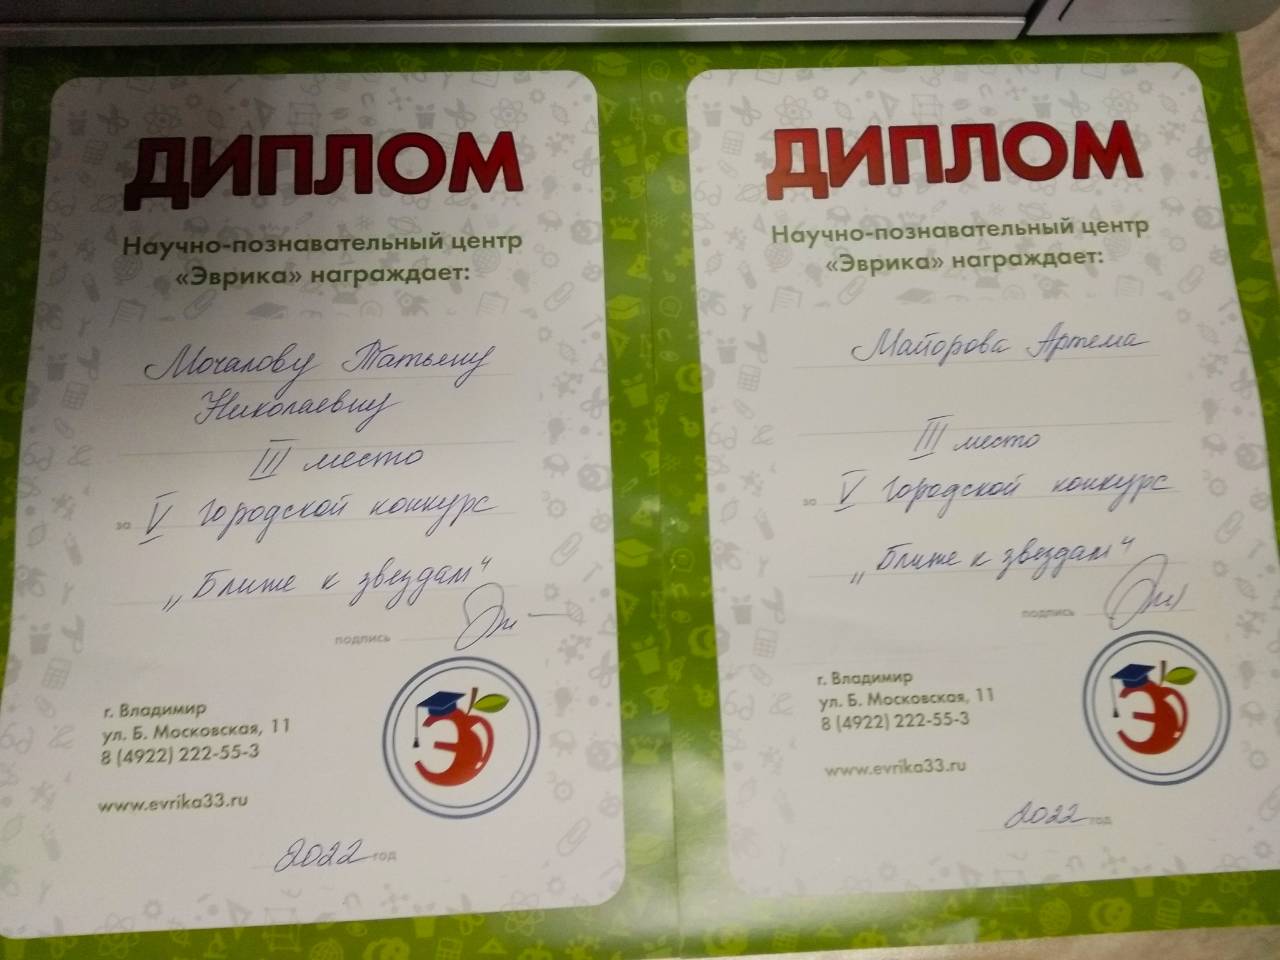 ДИПЛОМ
Научно-познавательный центр
«Эврика» награждает:
Мочалову Татьяну
Николаевну
III место
за V городской конкурс
„Ближе к звездам“
подпись
г. Владимир
ул. Б. Московская, 11
8 (4922) 222-55-3
www.evrika33.ru
Э
2022 год
ДИПЛОМ
Научно-познавательный центр
«Эврика» награждает:
Майорова Артема
III место
за V городской конкурс
„Ближе к звездам“
подпись
г. Владимир
ул. Б. Московская, 11
8 (4922) 222-55-3
www.evrika33.ru
Э
2022 год